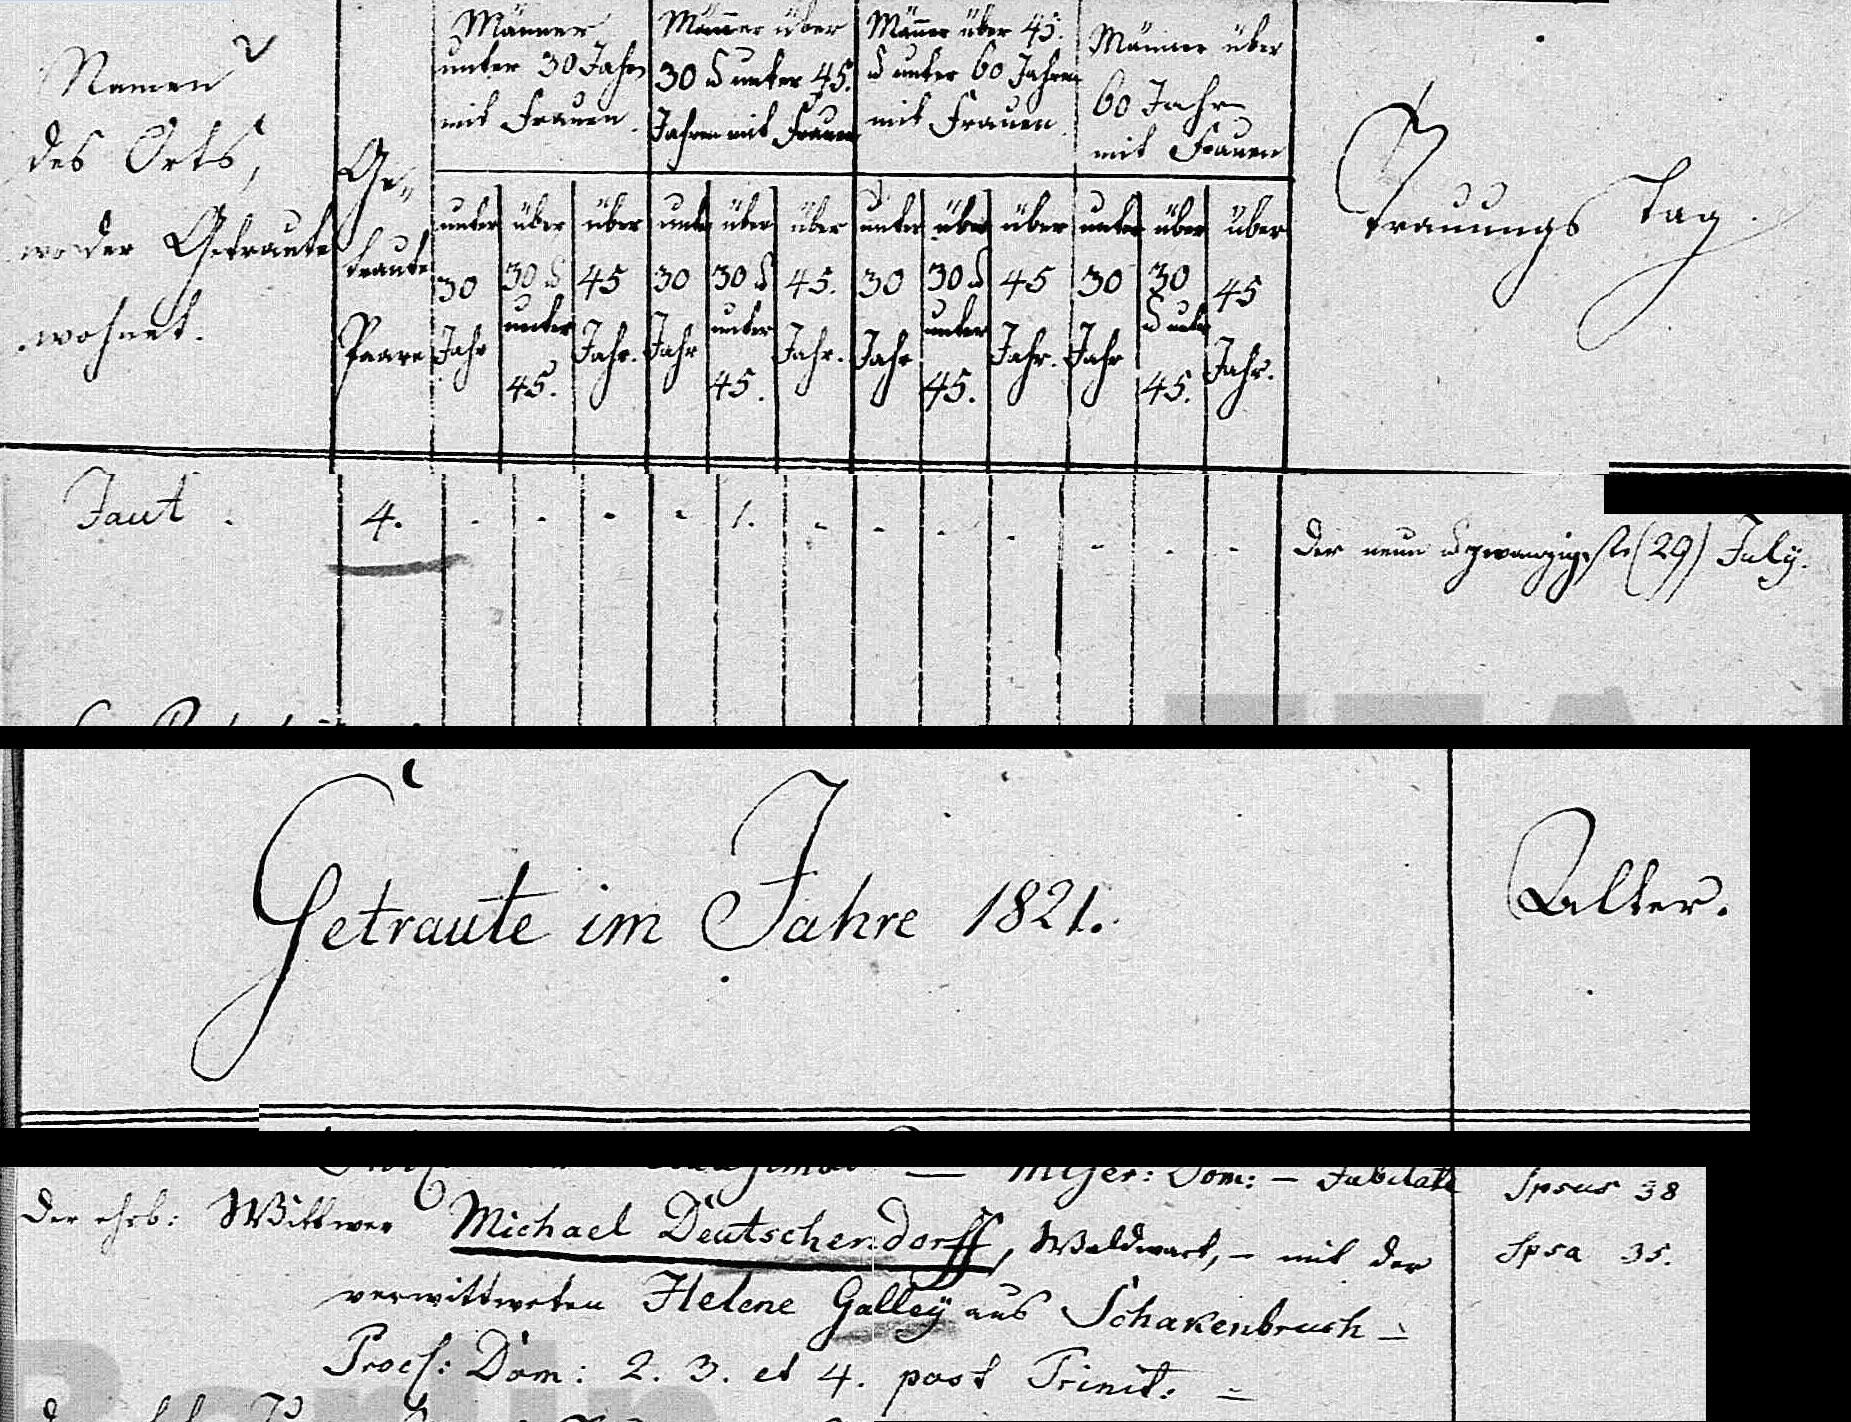 Namen
des Orts,
wo der Getraute
wohnet.
Ge-
traute
Paare
Männer
unter 30 Jahr
mit Frauen.
Männer über
30 u unter 45.
Jahren mit Frauen
Männer über 45.
u unter 60 Jahren
mit Frauen
Männer über
60 Jahr
mit Frauen
unter
30
Jahr
über
30 u
unter
45.
über
45
Jahr.
unter
30
Jahr
über
30 u
unter
45.
über
45.
Jahr.
unter
30
Jahr
über
30 u
unter
45.
über
45
Jahr.
unter
30
Jahr
über
30
u unter
45.
über
45
Jahr.
Trauungs Tag.
Jaut. 4. - - - - 1. - - - - - - - Der neun u zwanzigste (29) July.
Getraute im Jahre 1821.
Alter.
Mißer: Dom: — Jubilate Ipsus 38
Der ehrb: Wittwer Michael Deutschendorff, Waldwart, - mit der Ipsa 35.
verwittweten Helene Galleÿ aus Schakenbruch —
Procl: Dom: 2. 3. et 4. post Trinit: =